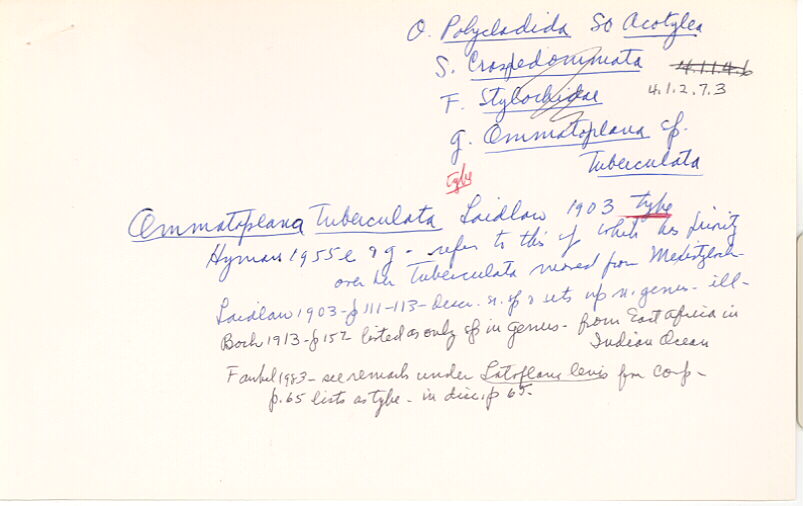 O. Polycladida SO Acotylea
S. Craspedommata 4.1.1.4.6
4.1.2.7.3
F. Stylochidae
g. Ommatoplana sp.
Tuberculata
type
Ommatoplana Tuberculata Laidlaw 1903 type
Hyman 1955e 89 - refers to this sp which has priority
over her Tuberculata moved from
Laidlaw 1903 - p111-113 - Descr. n. sp & sets up n. genus - ill -
Bock 1913 - p152 listed as only sp in Genus - from East Africa in
Indian Ocean
Faubel 1983 - see remarks under levis for comp -
p.65 lists as type - in disc. p 65 -